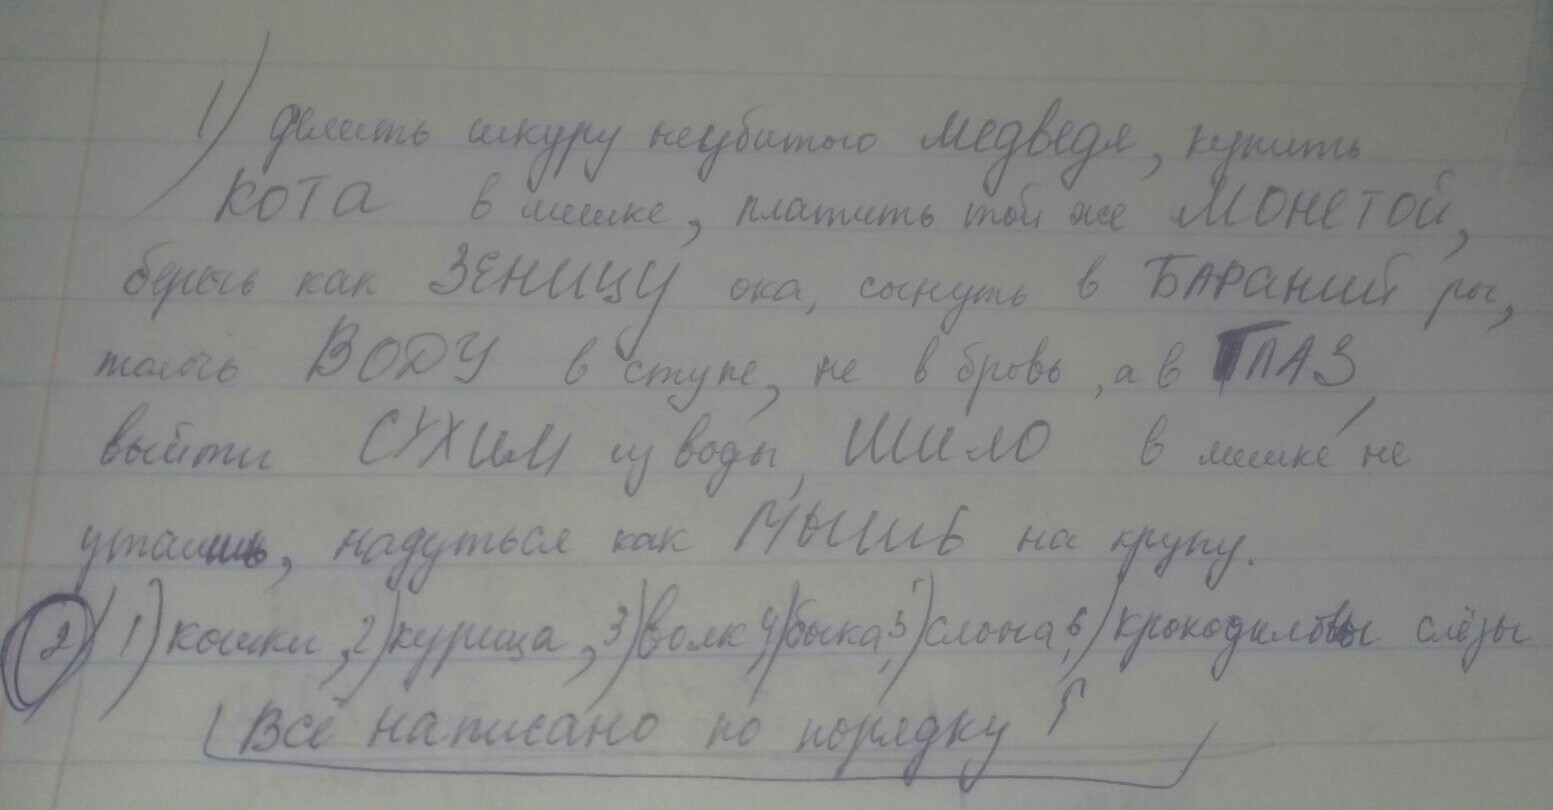 1) делить шкуру неубитого МЕДВЕДЯ, купить
КОТА в мешке, платить той же МОНЕТОЙ,
беречь как ЗЕНИЦУ ока, согнуть в БАРАНИЙ рог,
толочь ВОДУ в ступе, не в бровь, а в ГЛАЗ,
выйти СУХИМ из воды, ШИЛО в мешке не
утаишь, надуться как МЫШЬ на крупу.
2) 1) кошки, 2) курица, 3) волк, 4) быка, 5) слона, 6) крокодиловы слёзы
Всё написано по порядку!